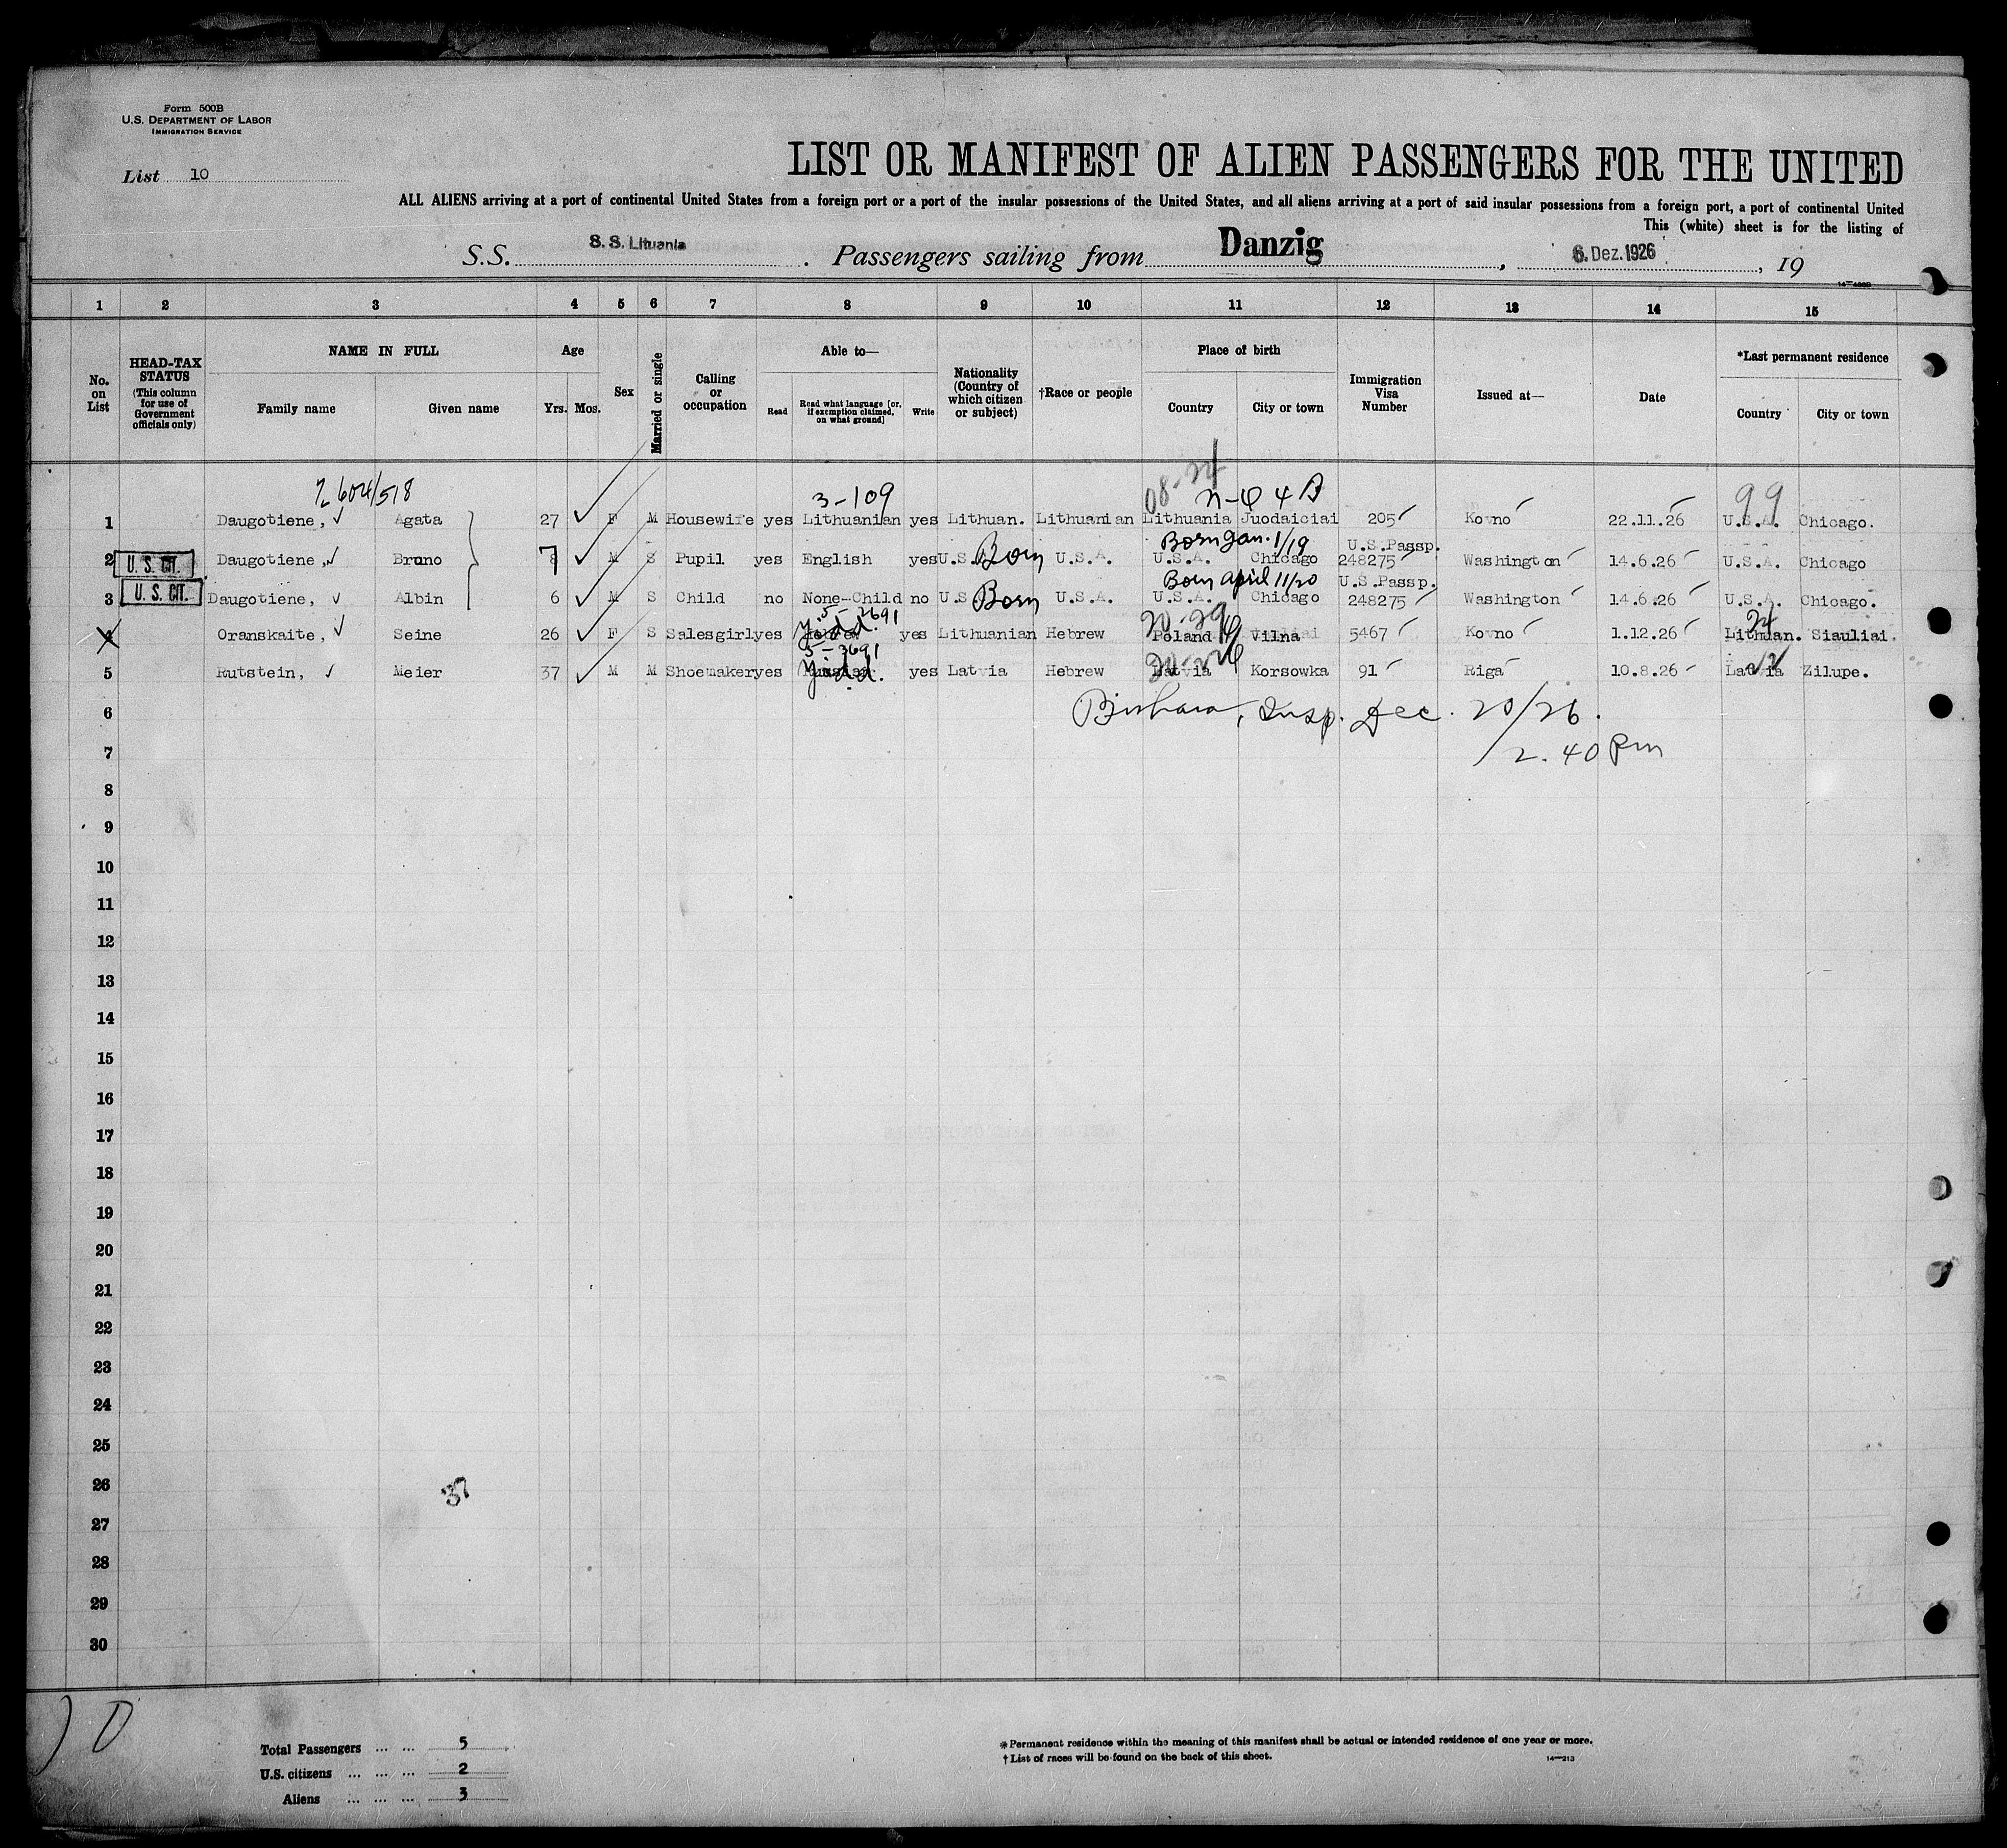 Form 500B
U.S. DEPARTMENT OF LABOR
IMMIGRATION SERVICE
List 10
LIST OR MANIFEST OF ALIEN PASSENGERS FOR THE UNITED
ALL ALIENS arriving at a port of continental United States from a foreign port or a port of the insular possessions of the United States, and all aliens arriving at a port of said insular possessions from a foreign port, a port of continental United
This (white) sheet is for the listing of
S.S. S. S. Lituania . Passengers sailing from Danzig , 6. Dez. 1926 , 19
1 2 3 4 5 6 7 8 9 10 11 12 13 14 15
No. on List
HEAD-TAX STATUS (This column for use of Government officials only)
NAME IN FULL
Family name Given name
Age
Yrs. Mos.
Sex
Married or single
Calling or occupation
Able to—
Read Read what language [or, if exemption claimed, on what ground] Write
Nationality (Country of which citizen or subject)
†Race or people
Place of birth
Country City or town
Immigration Visa Number
Issued at—
Date
*Last permanent residence
Country City or town
2604/518 3-109 08-24 99
1 Daugotiene, Agata 27 F M Housewife yes Lithuanian yes Lithuan. Lithuanian Lithuania Juodaiciai 205 Kovno 22.11.26 U.S.A. Chicago.
Born Jan. 1/19 U.S.Passp.
2 U. S. CIT. Daugotiene, Bruno 7 M S Pupil yes English yes U.S. Born U.S.A. U.S.A. Chicago 248275 Washington 14.6.26 U.S.A. Chicago
Born April 11/20 U.S.Passp.
3 U. S. CIT. Daugotiene, Albin 6 M S Child no None-Child no U.S. Born U.S.A. U.S.A. Chicago 248275 Washington 14.6.26 U.S.A. Chicago.
5-3691 20-29 24
4 Oranskaite, Seine 26 F S Salesgirl yes Yidd. yes Lithuanian Hebrew Poland Vilna 5467 Kovno 1.12.26 Lithuan. Siauliai.
5-3691
5 Rutstein, Meier 37 M M Shoemaker yes Yidd. yes Latvia Hebrew Latvia Korsowka 91 Riga 10.8.26 Latvia Zilupe.
6 Insp. Dec. 20/26.
7 2.40 Pm
8
9
10
11
12
13
14
15
16
17
18
19
20
21
22
23
24
25
26
37
27
28
29
30
10
Total Passengers ... ... 5
U.S. citizens ... ... ... 2
Aliens ... ... ... 3
*Permanent residence within the meaning of this manifest shall be actual or intended residence of one year or more.
†List of races will be found on the back of this sheet. 14—213